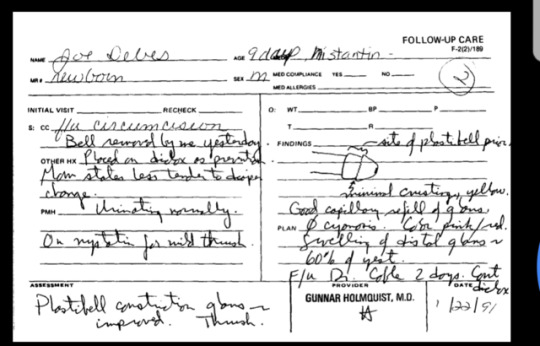 FOLLOW-UP CARE
F-2(2)/189
NAME Joe AGE 9 days
MR# Newborn SEX M MED COMPLIANCE YES NO
MED ALLERGIES
2
INITIAL VISIT RECHECK O: WT BP P
T R
S: CC f/u circumcision
Bell removed by me yesterday. FINDINGS site of plastibell prior
OTHER HX Placed on diclox as
Mom states less tender to diaper
change. minimal crusting, yellow.
PMH Urinating normally. Good capillary refill of glans.
PLAN Ø cyanosis. Color pink/red.
On nystatin for mild thrush. Swelling of distal glans ~
60% of yest.
F/u Dr. 2 days. Cont diclox
ASSESSMENT PROVIDER DATE
Plastibell constriction glans ~ GUNNAR HOLMQUIST, M.D. 1/22/91
improved. Thrush. H